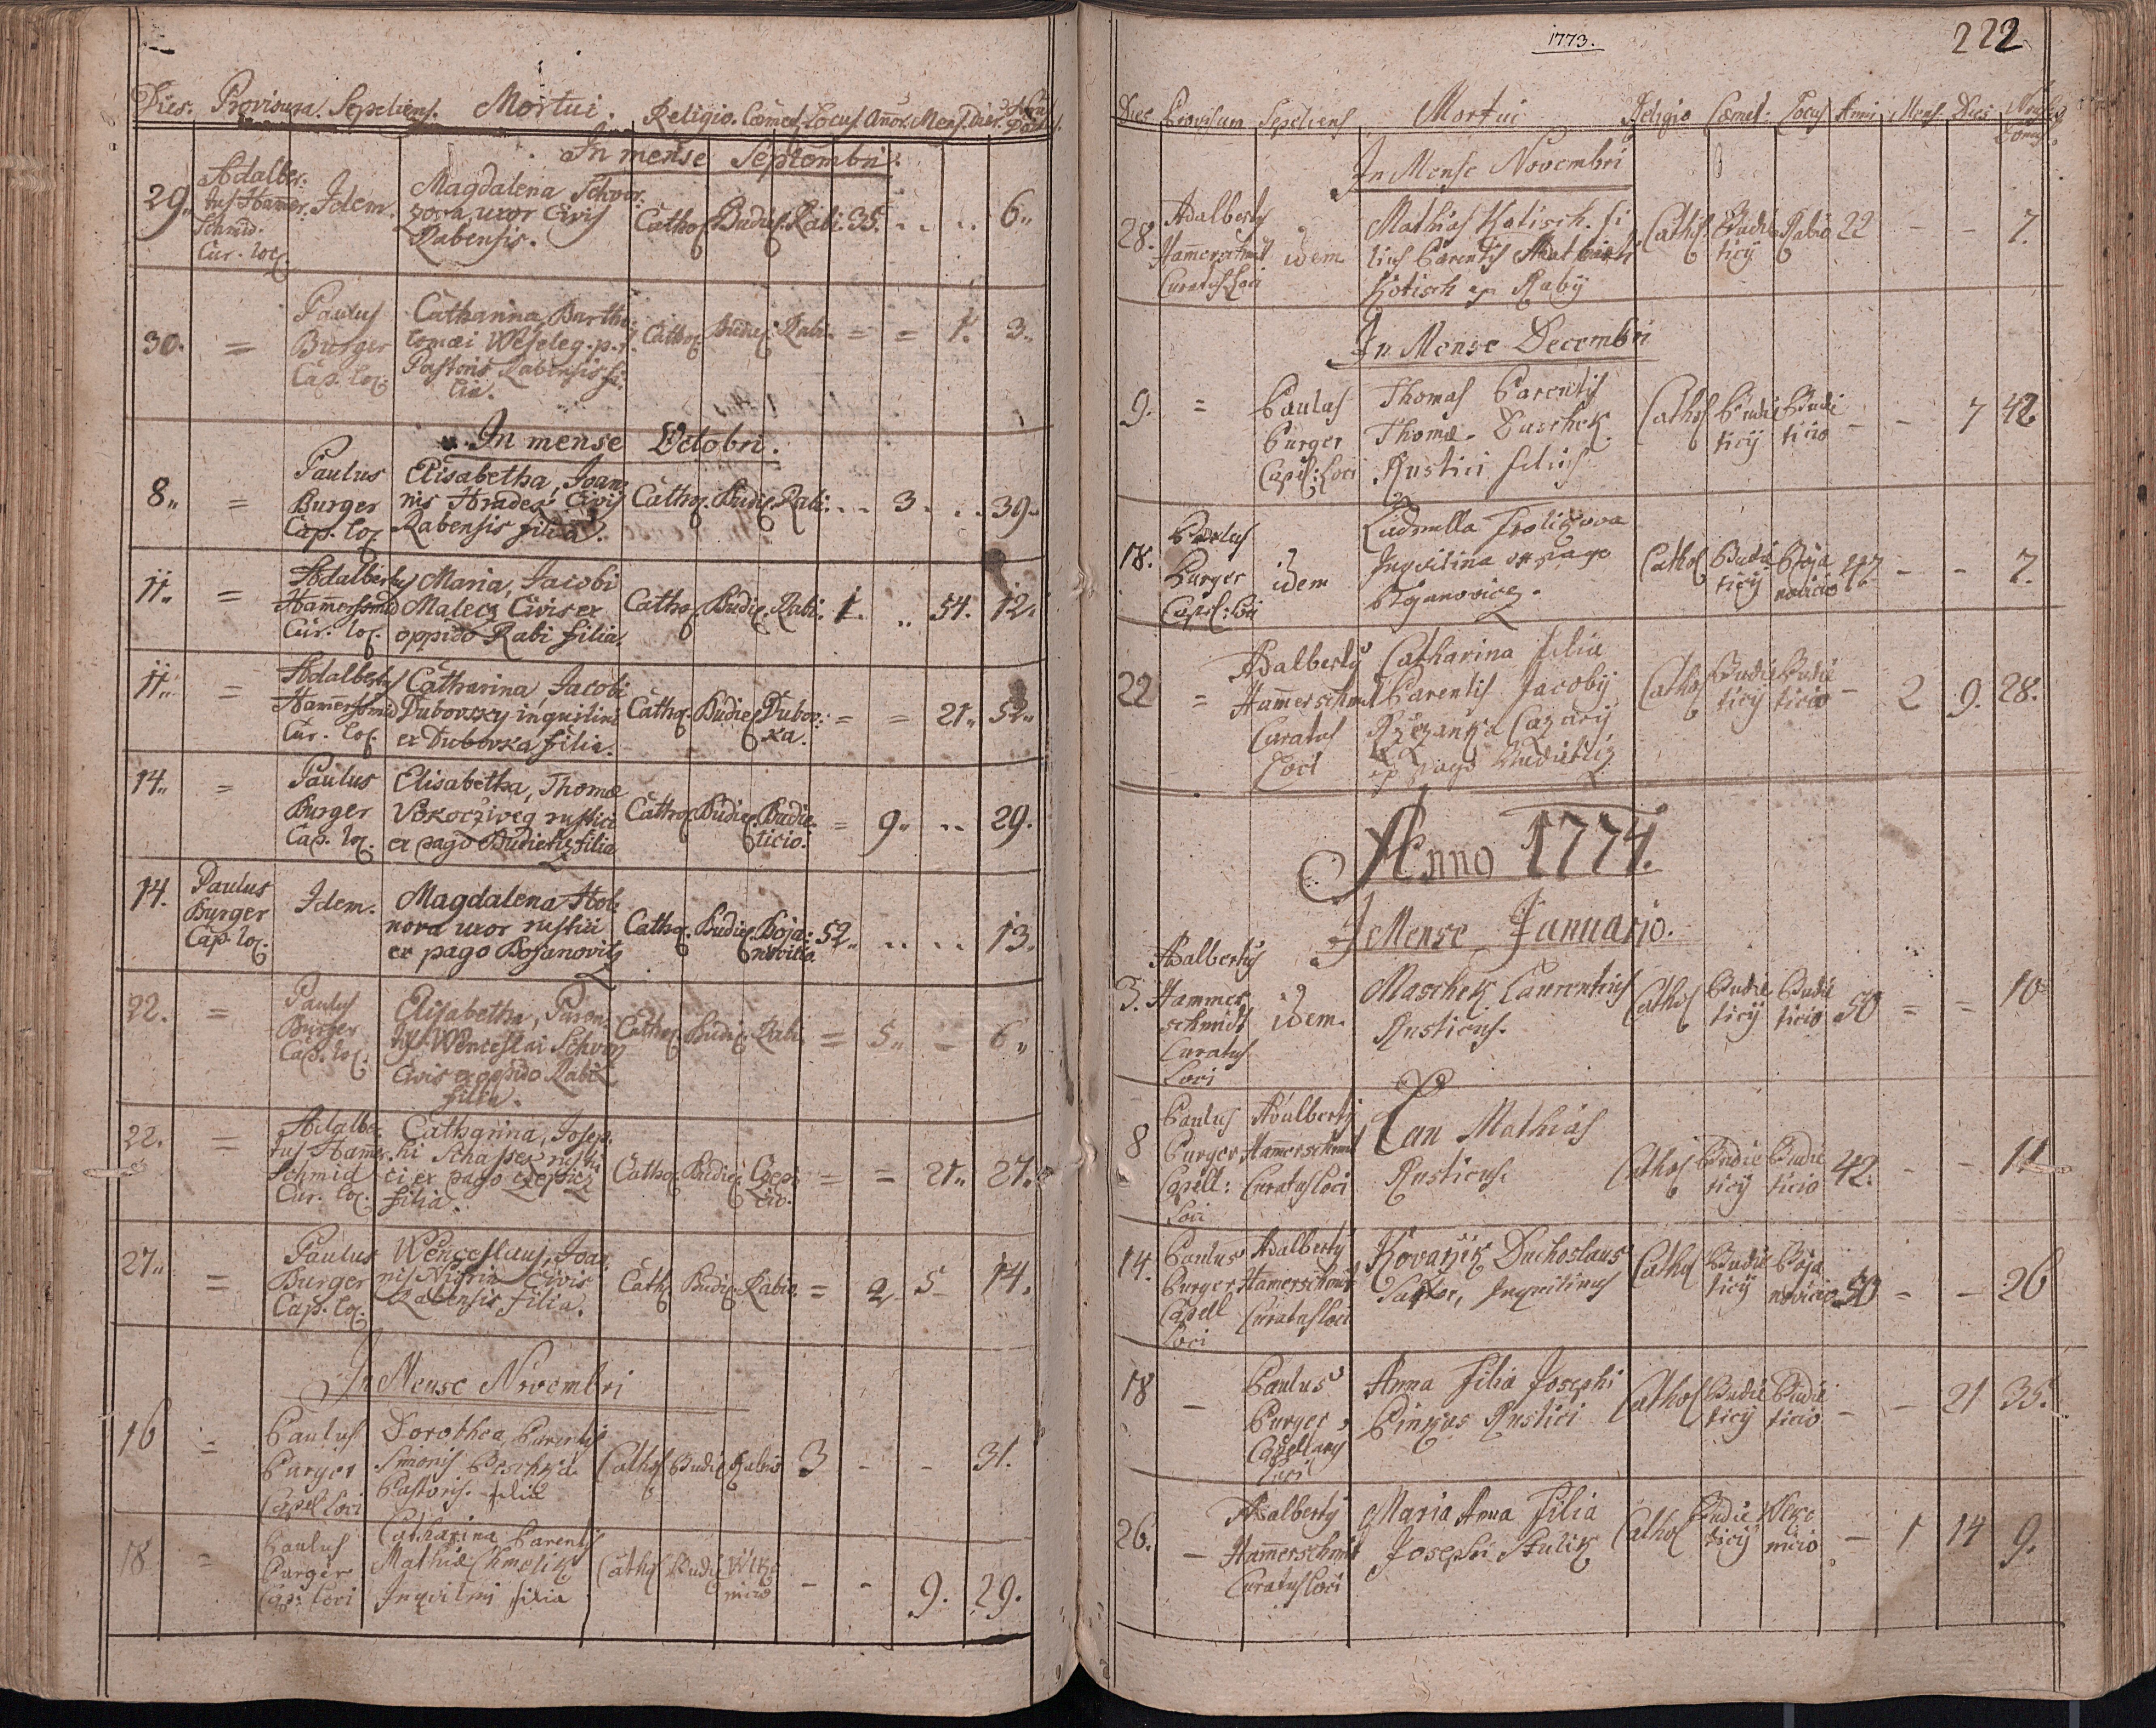 Dies. Provisura. Sepeliens. Mortui. Religio. Cœmet. Locus Annor. Mens. Dies
In mense Septembri.
29. Adalber:
tus Hamer.
Schmid.
Cur. loc. Idem. Magdalena Schvar:
zova, uxor Civis
Rabensis. Cathol. Budiet. Rabi. 35. .. .. 6.
30. = Paulus
Burger
Cap. loc. Catharina, Bartho:
lomæi Weseleg. p.t.
Pastoris Rabensis fi:
lia. Cathol. Budiet. Rabi. = = 1. 3.
In mense Octobri.
8. = Paulus
Burger
Cap. loc. Elisabetha, Joan:
nis Hradek Civis
Rabensis filia. Cathol. Budiet. Rabi. .. 3. .. 39.
11. = Adalbertus
Hamerschmid
Cur. loc. Maria, Jacobi
Malecz Civis ex
oppido Rabi filia. Cathol. Budiet. Rabi. 1. .. 54. 12.
11. = Adalbertus
Hamerschmid
Cur. loc. Catharina, Jacobi
Dubovsky inquilini
ex Dubovka filia. Cathol. Budiet. Dubov:
ka. = = 21. 52.
14. = Paulus
Burger
Cap. loc. Elisabetha, Thomæ
Vskocziweg rustici
ex pago Budietitz filia Cathol. Budiet. Budie:
ticio. = 9. .. 29.
14. Paulus
Burger
Cap. loc. Idem. Magdalena Hol:
nova uxor rustici
ex pago Bojanovitz Cathol. Budiet. Boja:
novicio 52. .. .. 13.
22. = Paulus
Burger
Cap. loc. Elisabetha, Paren:
tis Wenceslai Schvarz
Civis ex oppido Rabi
filia. Cathol. Budiet. Rabi. = 5. = 6.
22. = Adalber:
tus Hamer
Schmid
Cur. loc. Catharina, Josep:
hi Schaffer rusti
ci ex pago Czepicz
filia. Cathol. Budiet. Czepi
cio. = = 21. 27.
27. = Paulus
Burger
Cap. loc. Wenceslaus, Joan
nis Nigrin Civis
Rabensis filia. Cath. Budiet. Rabio. = 2 5 14.
In Mense Novembri
16 = Paulus
Burger
Capel Loci Dorothea Parentis
Simonis
Pastoris filia Cathol Budiet Rabio 3 - - 31.
18 = Paulus
Burger
Cap: Loci Catharina Parentis
Mathiæ Chmelik
Inquilini filia Cathol Budie Wlko
nicio - - 9. 29.
1773.
222
Dies Provisura Sepeliens Mortui Religio Cœmet: Locus Anni Mens. Dies
In Mense Novembri
28. Adalbertus
Hamerschmit
Curatus Loci idem Mathias Kotisch. fi
lius Parentis
Kotisch ex Raby Cathol Budie
ticij Rabio 22 - - 7.
In Mense Decembri
9. = Paulus
Burger
Capel: Loci Thomas Parentis
Thomæ Duschek
Rustici filius Cathol Budie
ticij Budi
ticio - - 7 42
18. Paulus
Burger
Capel: Loci idem Ludmilla Frolikova
Inquilina ex pago
Bojanovicz. Cathol Budie
ticij Boja
novicio 47 - - 7.
22 = Adalbertus
Hammerschmit
Curatus
Loci Catharina filia
Parentis Jacobij
Rzezanka Cazarij
ex pago Budietitz Cathol Budie
ticij Budie
ticio - 2 9. 28.
Anno 1774.
I Mense Januario.
3. Adalbertus
Hammer
schmidt
Curatus
Loci idem. Maschek Laurentius
Rusticus. Cathol Budie
ticij Budie
ticio 50 = = 10
8 Paulus
Burger
Capell:
Loci Adalbertus
Hamerschmit
Curatus Loci Pan Mathias
Rusticus. Cathol Budie
ticij Budie
ticio 42. - - 11
14. Paulus
Burger
Capell
Loci Adalbertus
Hamerschmit
Curatus Loci Kovařik Duchoslaus
Inquilinus Cathol Budie
ticij Boja
novicio 50 - - 26
18 - Paulus
Burger
Capellanus
Loci Anna Filia Josephi
Pinkas Rustici Cathol Budie
ticij Budie
ticio - - 21 35.
26. - Adalbertus
Hamerschmit
Curatus Loci Maria Anna Filia
Josephi Stulik Cathol Budie
ticij Wlko
nicio - 1 14 9.